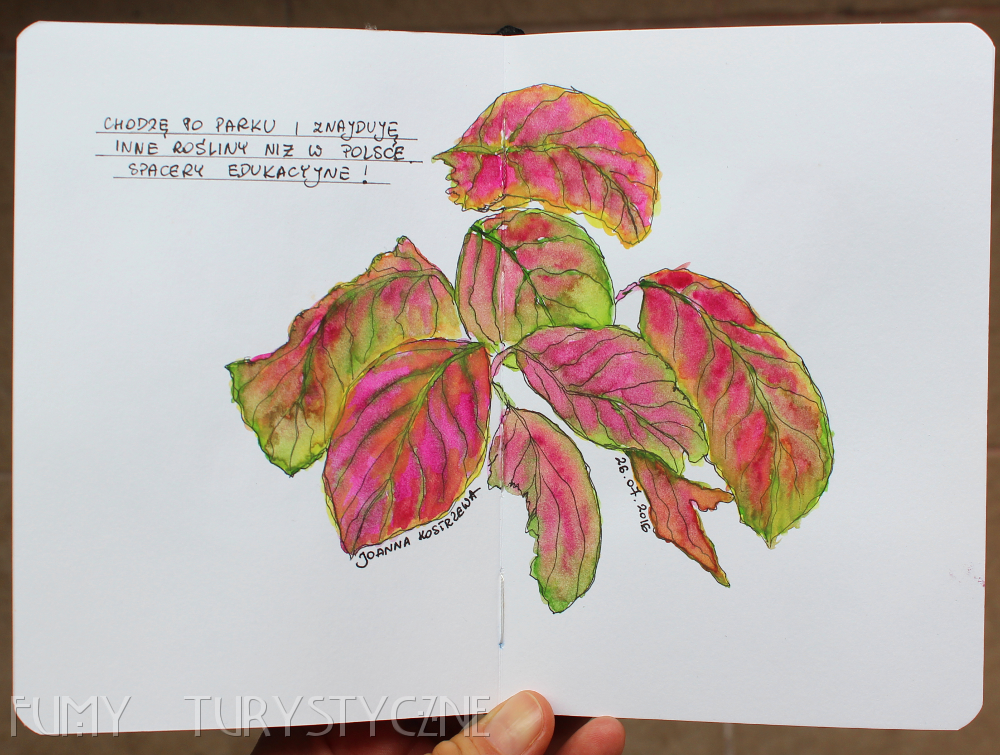 CHODZĘ PO PARKU I ZNAJDUJĘ
INNE ROŚLINY NIŻ W POLSCE.
SPACERY EDUKACYJNE!
26.07.2016
JOANNA KOSTRZEWA
FUMY TURYSTYCZNE